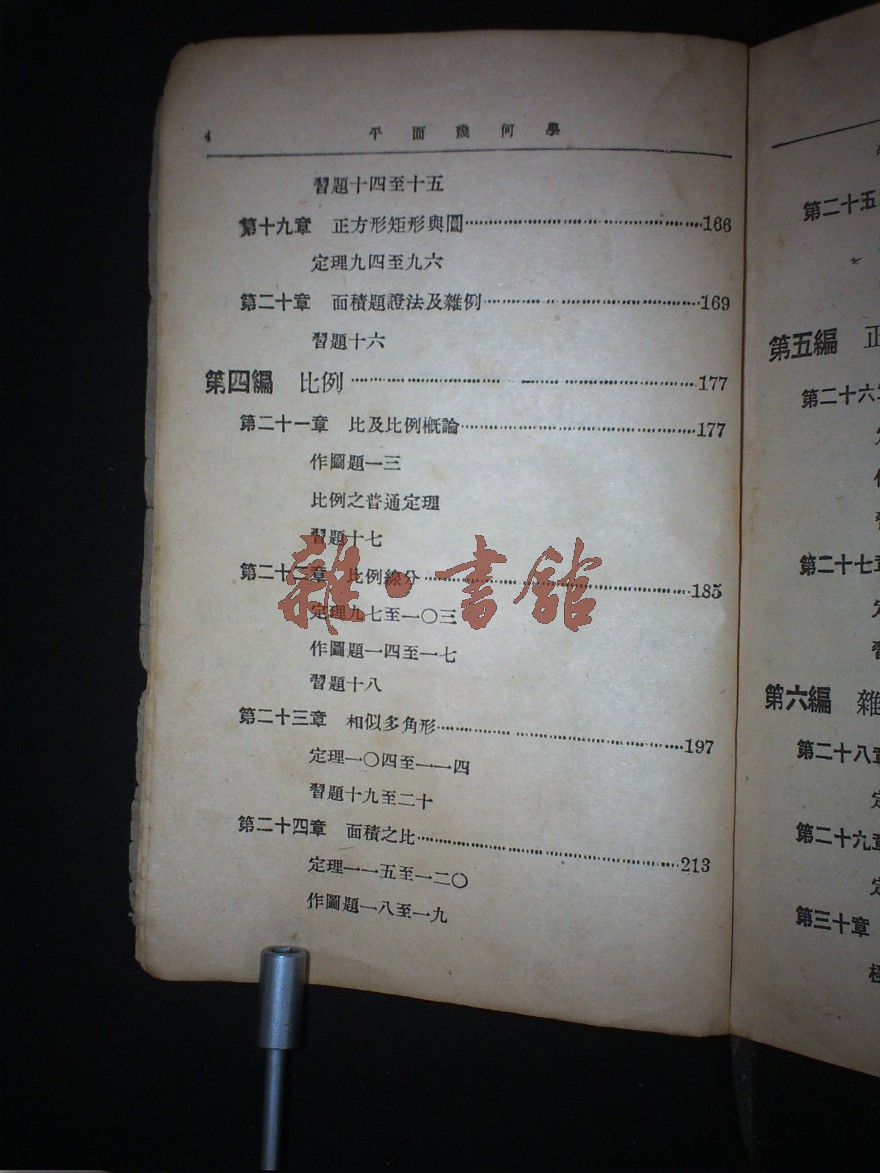 4 平面幾何學
習題十四至十五
第十九章 正方形矩形與圓……166
定理九四至九六
第二十章 面積題證法及雜例……169
習題十六
第四編 比例……177
第二十一章 比及比例概論……177
作圖題一三
比例之普通定理
習題十七
第二十二章 比例線分……185
定理九七至一〇三
作圖題一四至一七
習題十八
第二十三章 相似多角形……197
定理一〇四至一一四
習題十九至二十
第二十四章 面積之比……213
定理一一五至一二〇
作圖題一八至一九
雜·書館
第二十五
第五編 正
第二十六章
第二十七章
第六編 雜
第二十八章
第二十九章
第三十章